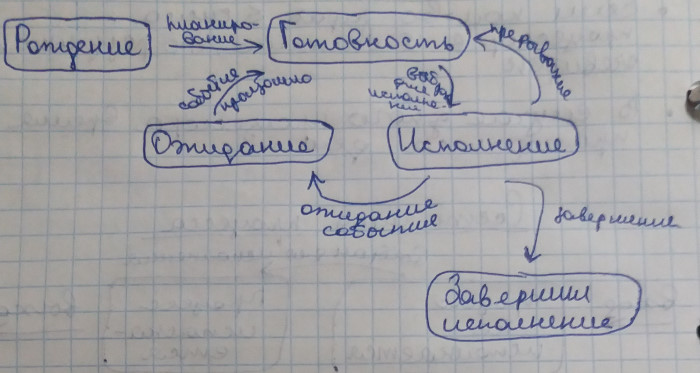 Рождение
планиро-
вание
Готовность
прерывание
событие
произошло
выбор
для
исполне-
ния
Ожидание
Исполнение
ожидание
события
завершение
Завершил
исполнение